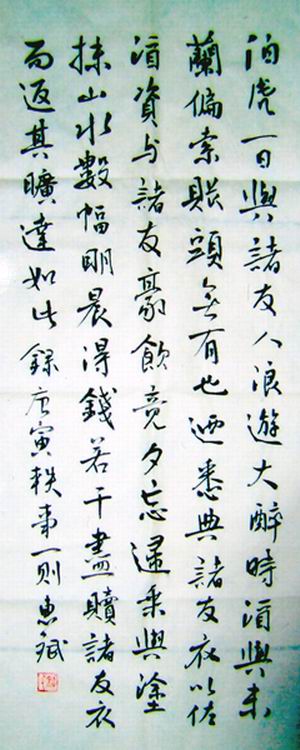 伯虎一日與諸友人浪遊大醉時酒興未
蘭偏索賬頭無有也迺悉典諸友衣以佐
酒資与諸友豪飲竟夕忘歸乘興塗
抹山水數幅明晨得錢若干盡贖諸友衣
而返其曠達如此錄唐寅軼事一則惠斌